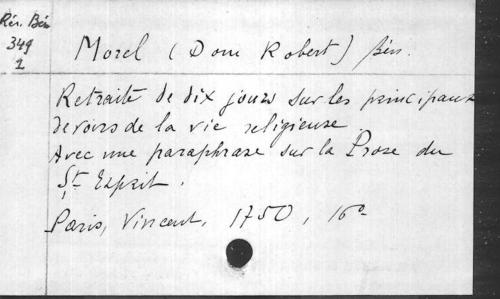 Rés. Bén
349
1
Morel (Dom Robert) Bén.
Retraite de dix jours sur les principaux
devoirs de la vie religieuse
Avec une paraphrase sur la Prose du
St Esprit.
Paris, Vincent, 1750, 16º